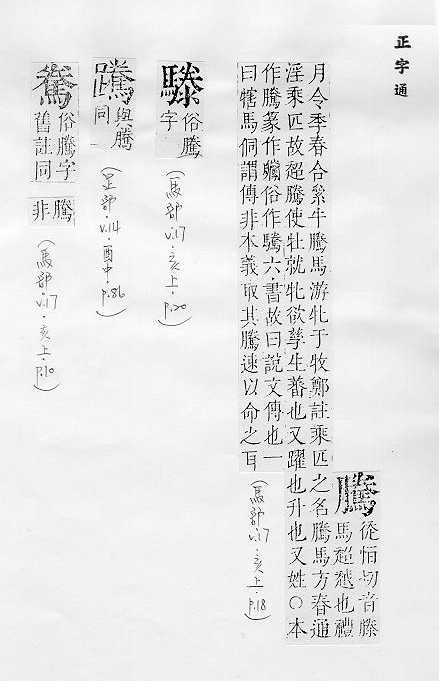 正字通
騰
徒恒切音滕
馬超越也禮
月令季春合纍牛騰馬游牝于牧鄭註乘匹之名騰馬方春通
淫乘匹故超騰使牡就牝欲孳生蕃也又躍也升也又姓○本
作騰篆作俗作驣六書故曰說文傳也一
曰犗馬侗謂傳非本義取其騰速以命之耳
(馬部·v.17·亥上·p.18)
俗騰
字
(馬部·v.17·亥上·p.20)
與騰
同
(足部·v.14·酉中·p.86)
俗騰字
舊註同
騰
非
(馬部·v.17·亥上·p.10)